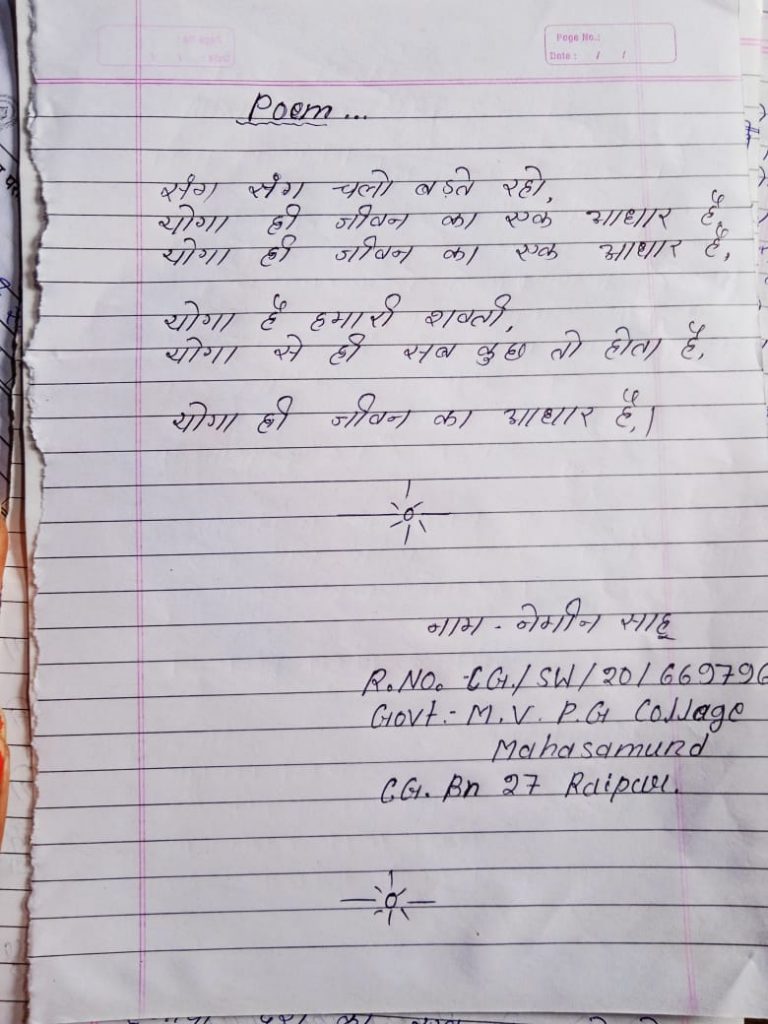 Page No.:
Date : / /
Poem...
संग संग चलो बड़ते रहो,
योगा ही जीवन का एक आधार है,
योगा ही जीवन का एक आधार है,
योगा है हमारी शक्ती,
योगा से ही सब कुछ तो होता है,
योगा ही जीवन का आधार है,।
नाम - नेमीन साहू
R.NO. -CG/SW/20/669796
Govt.- M.V. P.G Collage
Mahasamund
CG. Bn 27 Raipur.